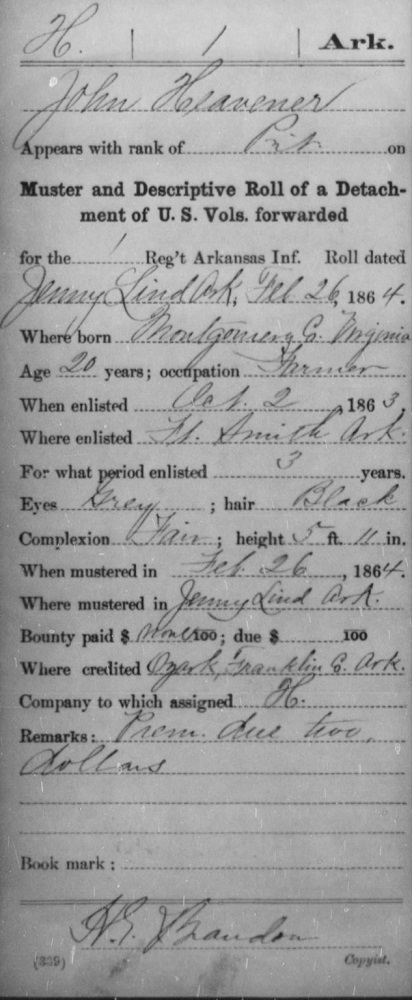 H. | 1 | Ark.
John Heavener
Appears with rank of Pvt. on
Muster and Descriptive Roll of a Detach-
ment of U. S. Vols. forwarded
for the 1 Reg't Arkansas Inf. Roll dated
Jenny Lind Ark, Feb 26, 1864.
Where born Montgomery Co. Virginia
Age 20 years; occupation Farmer
When enlisted Oct. 2, 1863
Where enlisted Ft. Smith Ark.
For what period enlisted 3 years.
Eyes Grey; hair Black
Complexion Fair; height 5 ft. 11 in.
When mustered in Feb. 26, 1864.
Where mustered in Jenny Lind Ark.
Bounty paid $ None 100; due $ 100
Where credited Ozark, Franklin C. Ark.
Company to which assigned H.
Remarks: Prem. due two
dollars
Book mark:
H. Brandon
(339) Copyist.